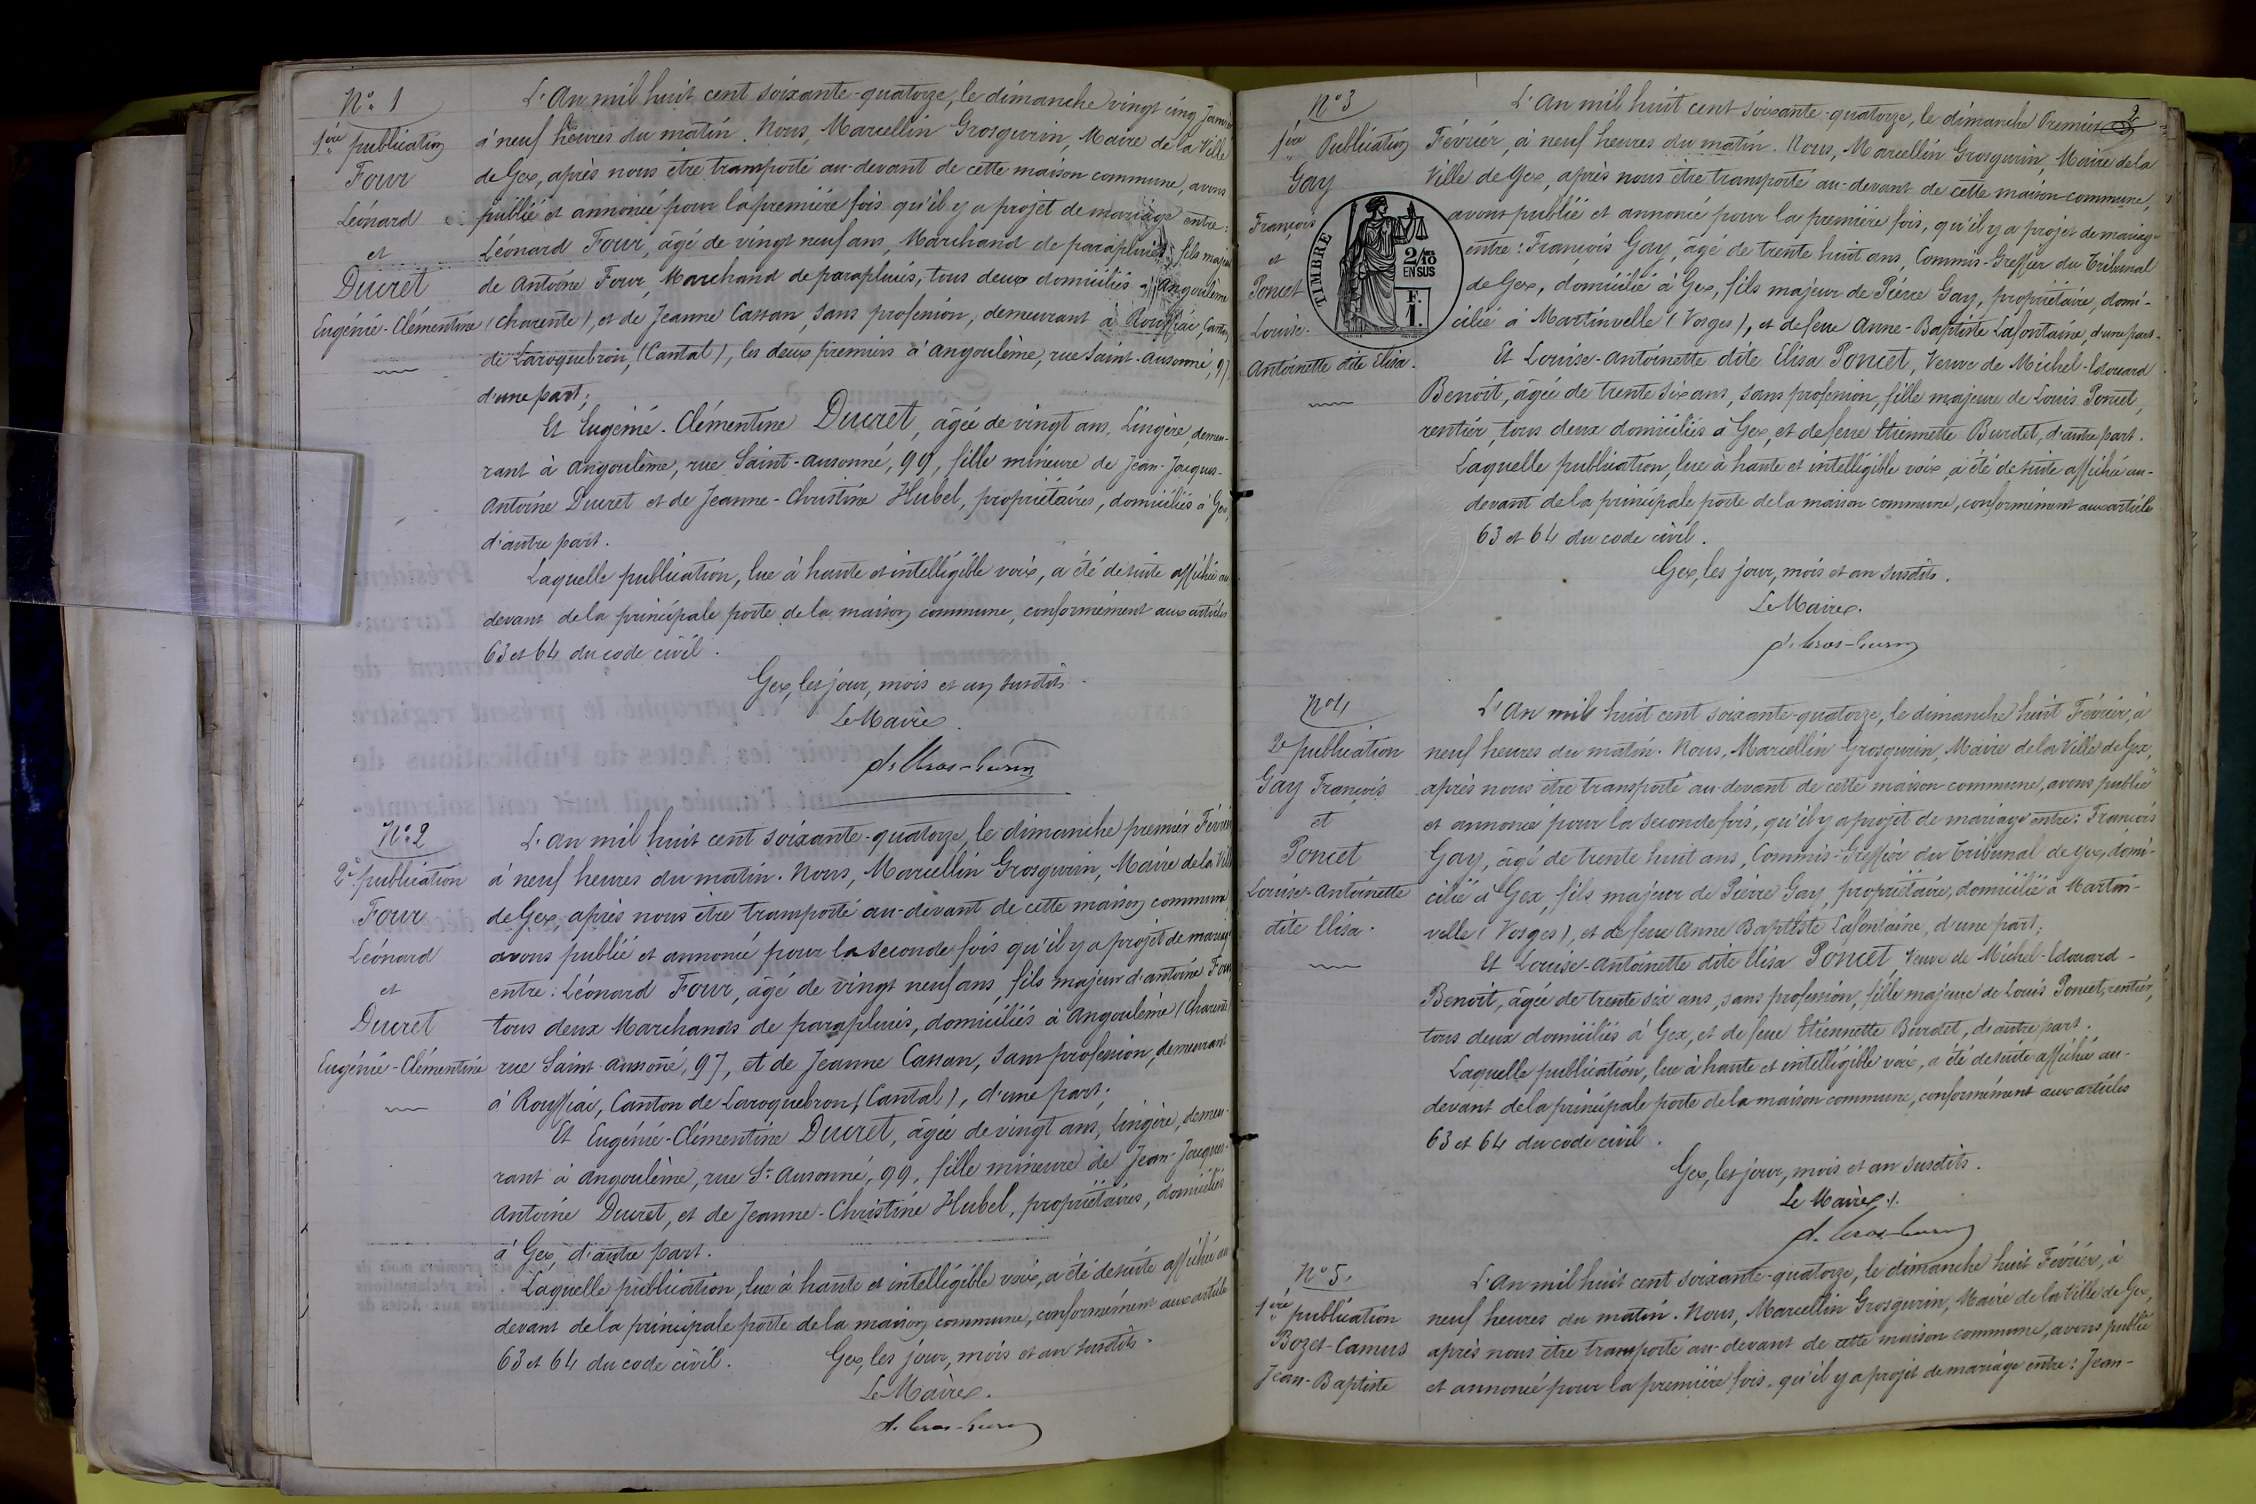 N° 1
1ère publication
Four
Léonard
et
Ducret
Eugénie-Clémentine
L'An mil huit cent soixante-quatorze, le dimanche vingt cinq Janvier
à neuf heures du matin. Nous, Marcellin Grosgurin, Maire de la Ville
de Gex, après nous être transporté au-devant de cette maison commune, avons
publié et annoncé pour la première fois qu'il y a projet de mariage entre:
Léonard Four, âgé de vingt neuf ans, Marchand de parapluies, fils majeur
de Antoine Four, Marchand de parapluies, tous deux domiciliés à Angoulême
(Charente), et de Jeanne Cassan, sans profession, demeurant à Rouffiac, Canton
de Laroquebrou, (Cantal), les deux premiers à Angoulême, rue Saint-Ausonne, 97
d'une part;
Et Eugénie-Clémentine Ducret, âgée de vingt ans, Lingère, demeu-
rant à Angoulême, rue Saint-Ausonne, 99, fille mineure de Jean-Jacques-
Antoine Ducret et de Jeanne-Christine Hubel, propriétaires, domiciliés à Gex,
d'autre part.
Laquelle publication, lue à haute et intelligible voix, a été de suite affichée au
devant de la principale porte de la maison commune, conformément aux articles
63 et 64 du code civil.
Gex, les jour, mois et an susdits.
Le Maire
N° 2
2e publication
Four
Léonard
et
Ducret
Eugénie-Clémentine
L'An mil huit cent soixante-quatorze, le dimanche premier Février
à neuf heures du matin. Nous, Marcellin Grosgurin, Maire de la Ville
de Gex, après nous être transporté au-devant de cette maison commune
avons publié et annoncé pour la seconde fois qu'il y a projet de mariage
entre: Léonard Four, âgé de vingt neuf ans, fils majeur d'Antoine Four
tous deux Marchands de parapluies, domiciliés à Angoulême (Charente)
rue Saint-Ausonne, 97, et de Jeanne Cassan, sans profession, demeurant
à Rouffiac, Canton de Laroquebrou, (Cantal), d'une part;
Et Eugénie-Clémentine Ducret, âgée de vingt ans, lingère, demeu-
rant à Angoulême, rue St Ausonne, 99, fille mineure de Jean-Jacques-
Antoine Ducret, et de Jeanne-Christine Hubel, propriétaires, domiciliés
à Gex, d'autre part.
Laquelle publication, lue à haute et intelligible voix, a été de suite affichée au
devant de la principale porte de la maison commune, conformément aux articles
63 et 64 du code civil. Gex, les jour, mois et an susdits.
Le Maire.
2
N° 3
1ère Publication
Gay
François
et
Poncet
Louise-
Antoinette dite Elisa.
TIMBRE
2/10
EN SUS
F.
1.
L'An mil huit cent soixante-quatorze, le dimanche Premier
Février, à neuf heures du matin. Nous, Marcellin Grosgurin, Maire de la
Ville de Gex, après nous être transporté au-devant de cette maison-commune,
avons publié et annoncé pour la première fois, qu'il y a projet de mariage
entre: François Gay, âgé de trente huit ans, Commis-Greffier du Tribunal
de Gex, domicilié à Gex, fils majeur de Pierre Gay, propriétaire, domi-
cilié à Martinvelle (Vosges), et de feue Anne-Baptiste Lafontaine, d'une part.
Et Louise-Antoinette dite Elisa Poncet, Veuve de Michel-Edouard
Benoit, âgée de trente six ans, sans profession, fille majeure de Louis Poncet,
rentier, tous deux domiciliés à Gex, et de feue Etiennette Burdet, d'autre part.
Laquelle publication, lue à haute et intelligible voix, a été de suite affichée au-
devant de la principale porte de la maison commune, conformément aux articles
63 et 64 du code civil.
Gex, les jour, mois et an susdits.
Le Maire.
N° 4
2e publication
Gay François
et
Poncet
Louise-Antoinette
dite Elisa.
L'An mil huit cent soixante-quatorze, le dimanche huit Février, à
neuf heures du matin. Nous, Marcellin Grosgurin, Maire de la Ville de Gex,
après nous être transporté au-devant de cette maison commune, avons publié
et annoncé pour la seconde fois, qu'il y a projet de mariage entre: François
Gay, âgé de trente huit ans, Commis-Greffier du Tribunal de Gex, domi-
cilié à Gex, fils majeur de Pierre Gay, propriétaire, domicilié à Martin-
velle (Vosges), et de feue Anne Baptiste Lafontaine, d'une part;
Et Louise-Antoinette dite Elisa Poncet, Veuve de Michel-Edouard-
Benoit, âgée de trente six ans, sans profession, fille majeure de Louis Poncet, rentier,
tous deux domiciliés à Gex, et de feue Etiennette Burdet, d'autre part.
Laquelle publication, lue à haute et intelligible voix, a été de suite affichée au-
devant de la principale porte de la maison commune, conformément aux articles
63 et 64 du code civil.
Gex, les jour, mois et an susdits.
Le Maire
N° 5.
1ère publication
Bozet-Camus
Jean-Baptiste
L'An mil huit cent soixante-quatorze, le dimanche huit Février, à
neuf heures du matin. Nous, Marcellin Grosgurin, Maire de la Ville de Gex,
après nous être transporté au-devant de cette maison commune, avons publié
et annoncé pour la première fois, qu'il y a projet de mariage entre: Jean-